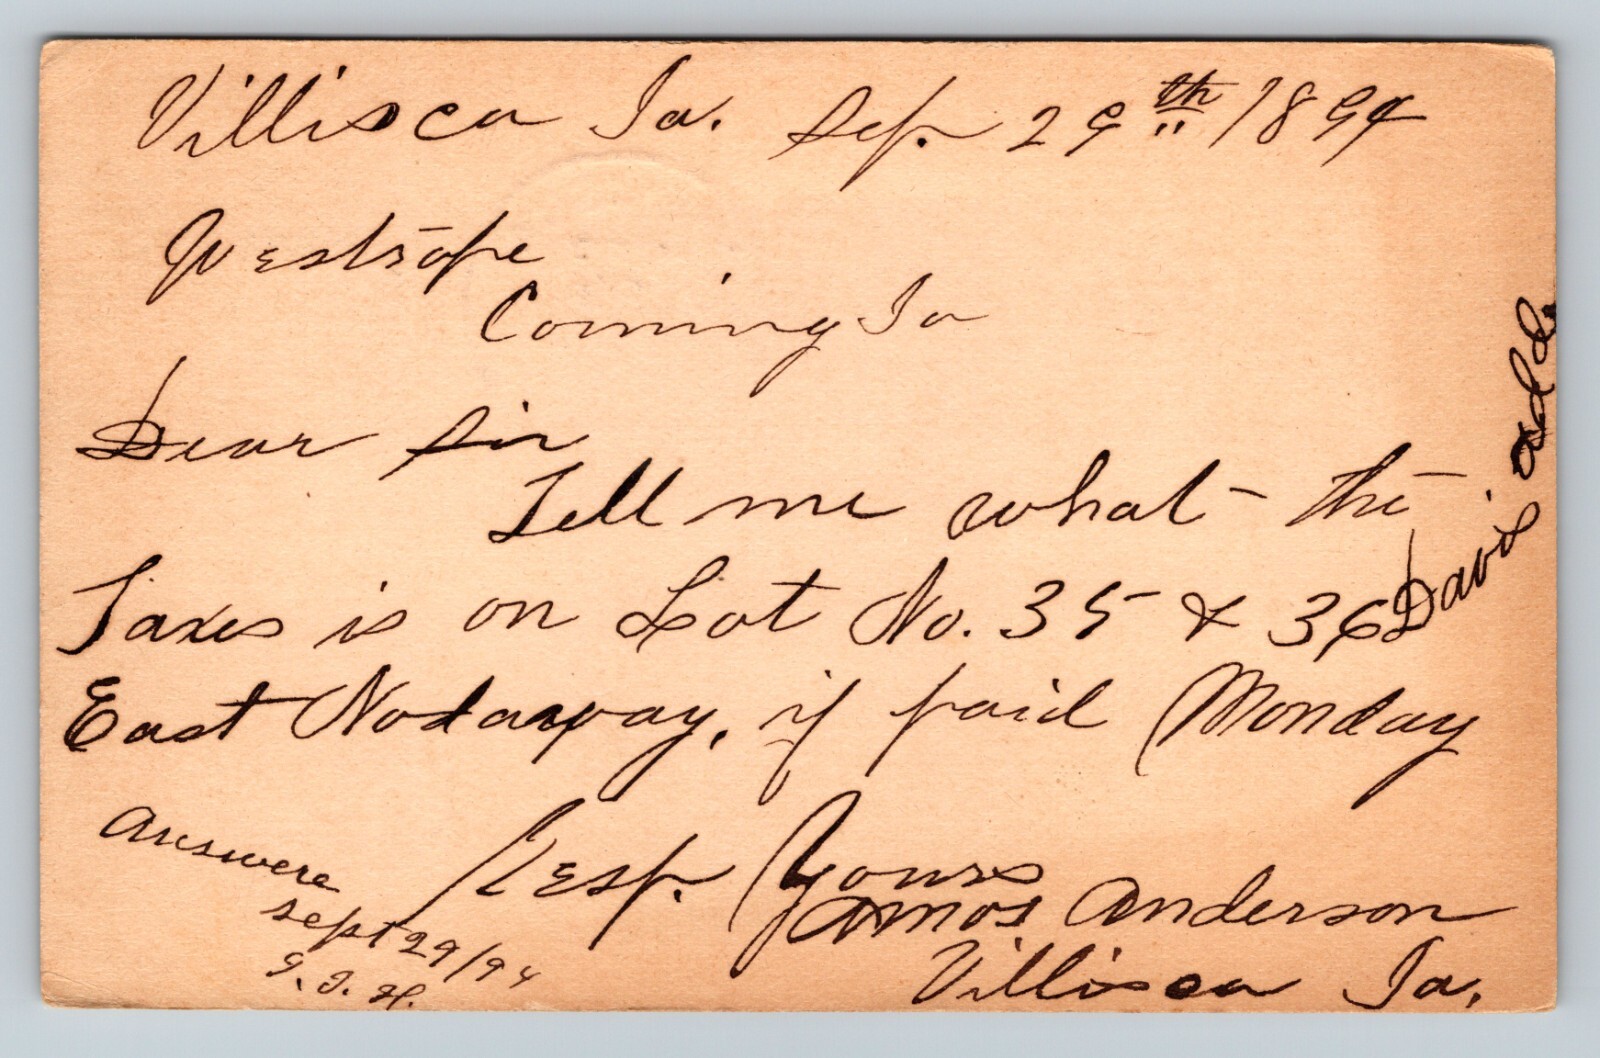 Villisca Ia. Sep. 29th 1894
Westrope
Corning Ia
Dear Sir
Tell me what the
Taxes is on Lot No. 35 & 36 Davis add.
East Nodaway, if paid Monday
Resp. Yours
Amos Anderson
Villisca Ia.
Answere
Sept 29/94